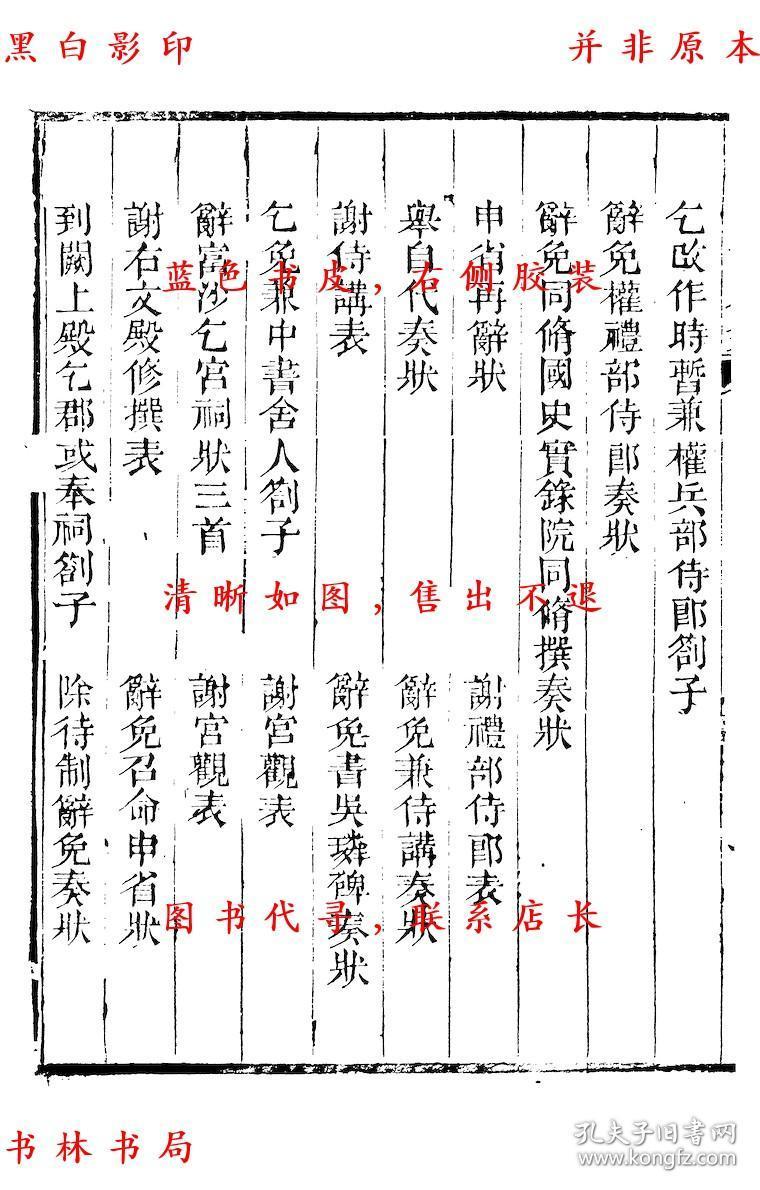 黑白影印
并非原本
乞改作時暫兼權兵部侍郎劄子
辭免權禮部侍郎奏狀
辭免同脩國史實錄院同脩撰奏狀
申省再辭狀
謝禮部侍郎表
舉自代奏狀
辭免兼侍講奏狀
謝侍講表
辭免書吳璘碑奏狀
乞免兼中書舍人劄子
謝宮觀表
辭富沙乞宮祠狀三首
謝宮觀表
謝右文殿修撰表
辭免召命申省狀
到闕上殿乞郡或奉祠劄子
除待制辭免奏狀
蓝色书皮,右侧胶装
清晰如图,售出不退
图书代寻,联系店长
书林书局
孔夫子旧书网
www.kongfz.com